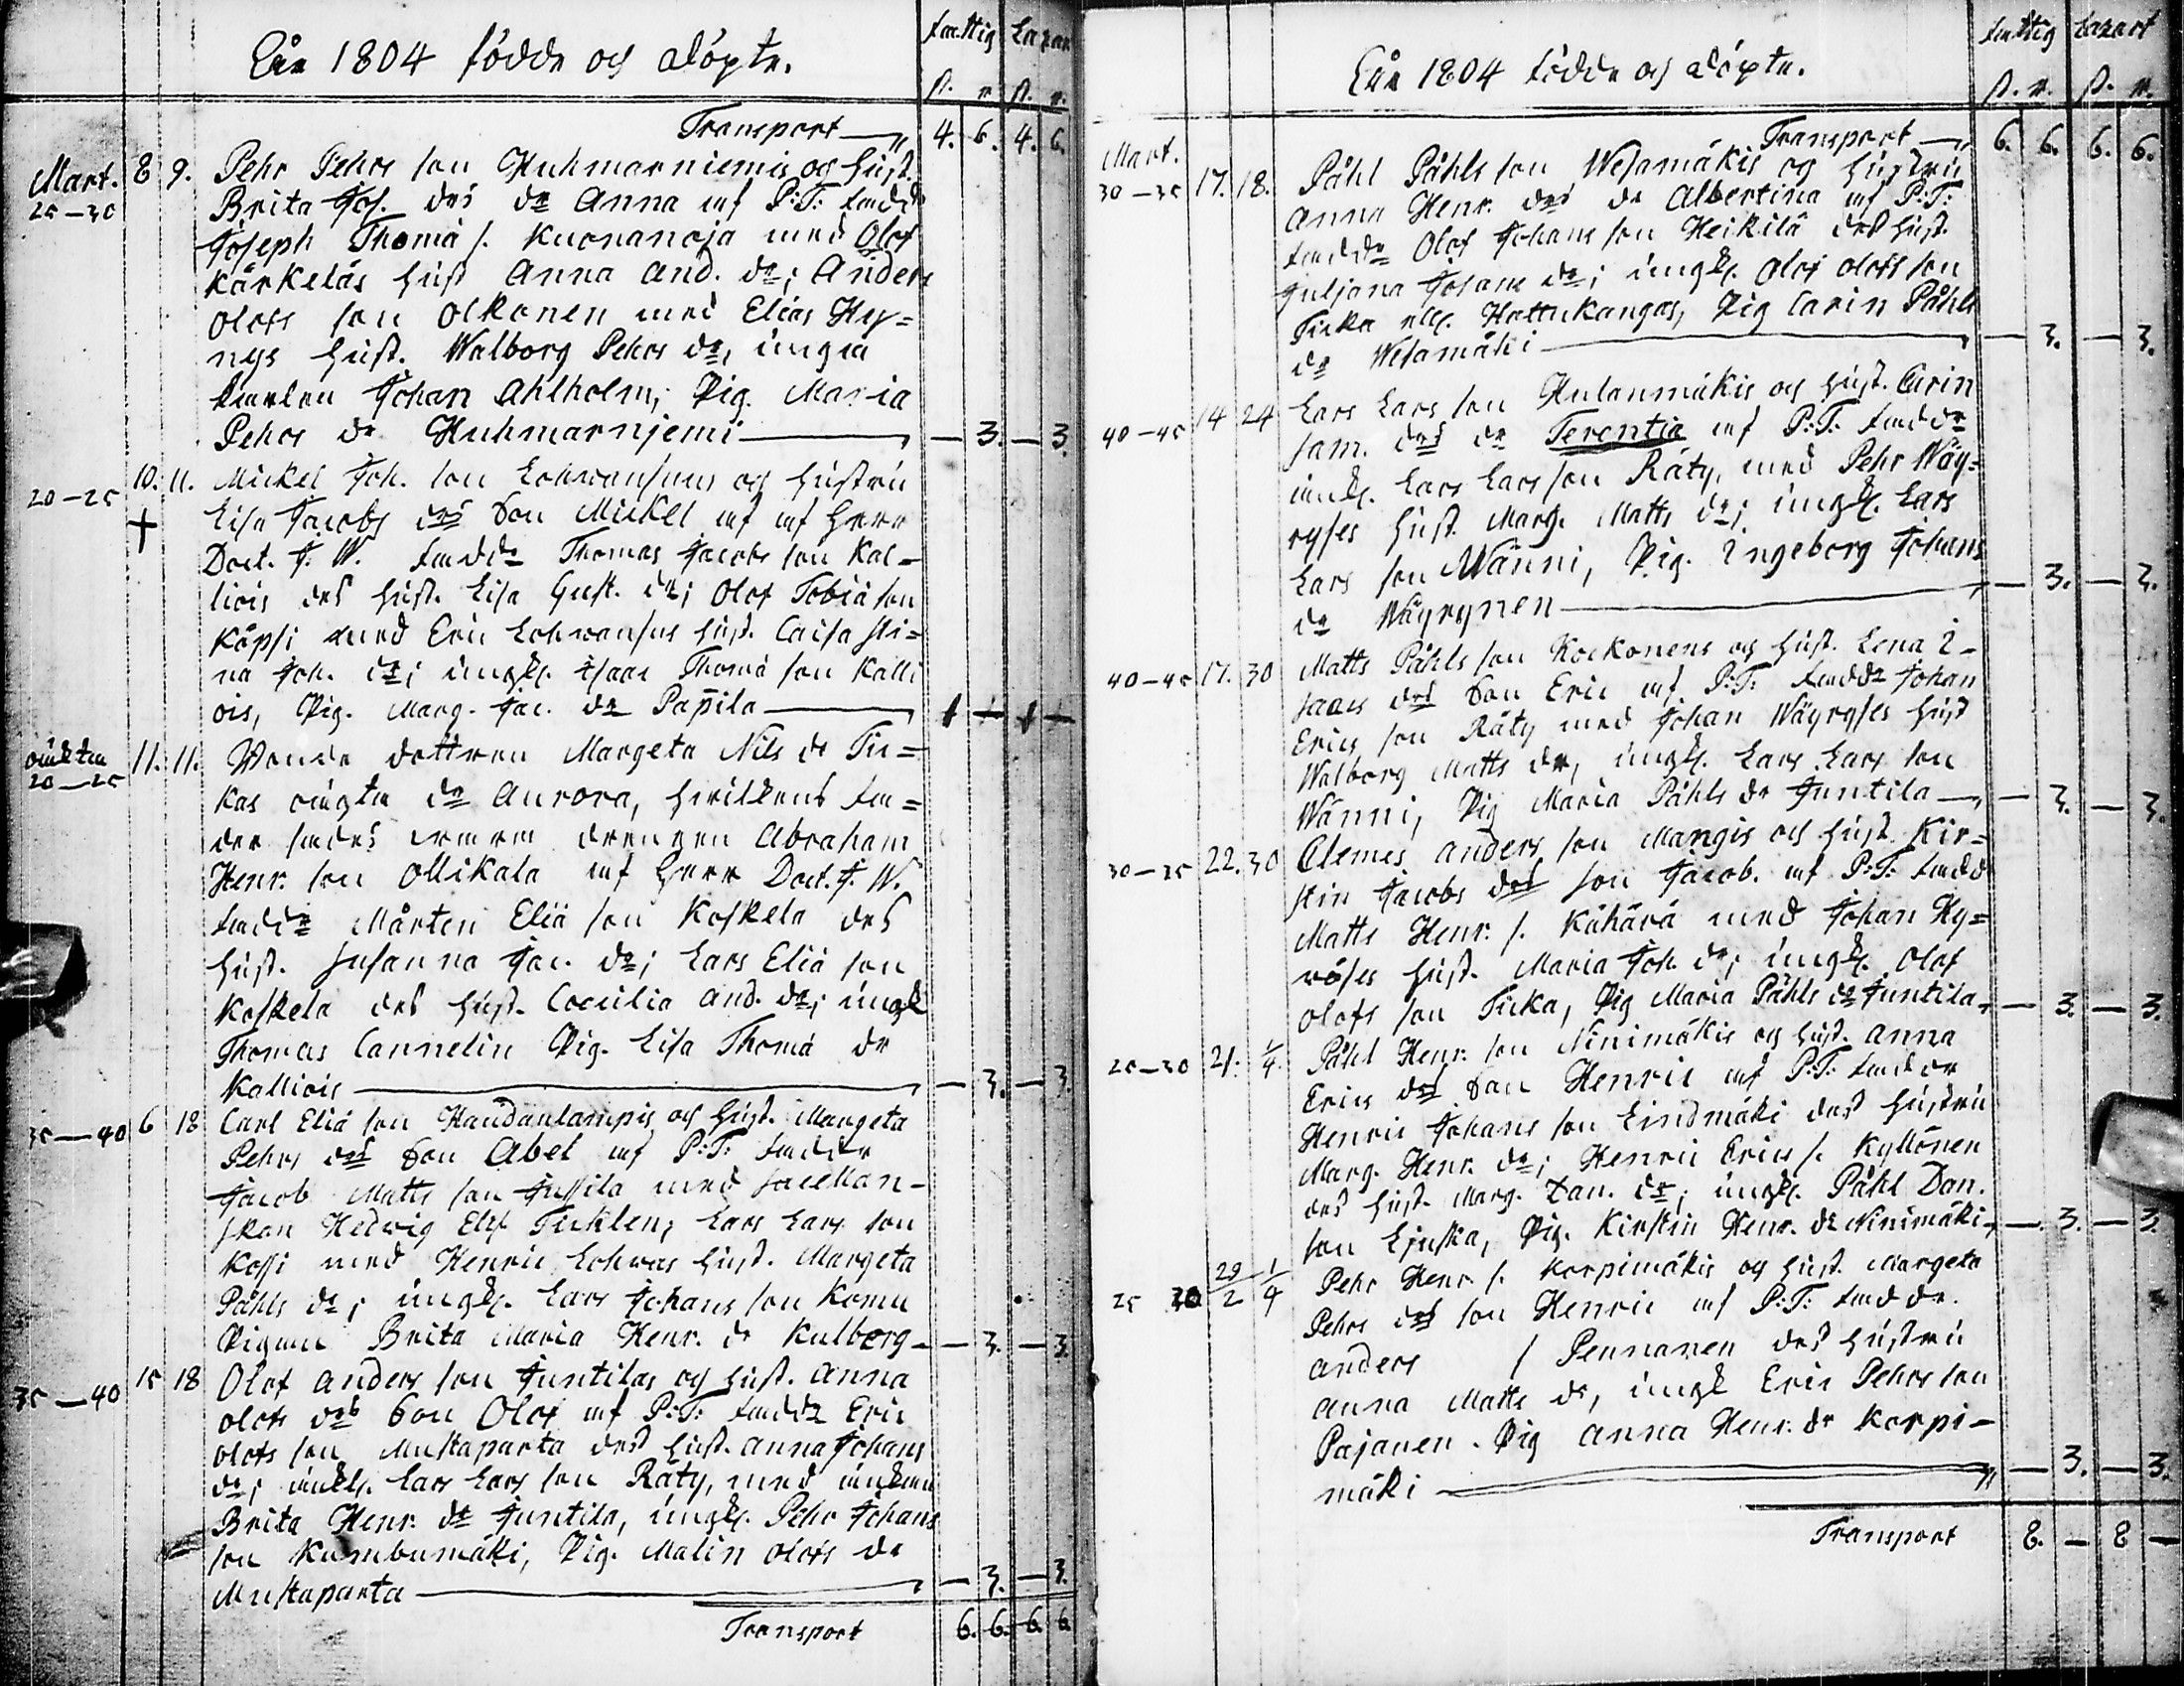 Åhr 1804 födde och döpte.
fattig Lazar
ß. r. ß. r.
Transport 4. 6. 4. 6.
Mart. 8 9. Pehr Pehrs son Huhmarniemis och hust.
25-30 Brita Jos. des dr Anna af P:T: fadd
Joseph Thomä s. Kuonanoja med Olof
Kärkeläs hust Anna And. dr; Anders
Olofs son Olkonen med Elias Hy=
nys hust. Walborg Pehrs dr, unga
Johan Ahlholm; Pig. Maria
Pehrs dr Huhmarnjemi — 3. — 3.
20-25 10. 11. Mickel Joh. son Lohwansuus och hustru
† Lisa Jacobs des Son Mickel af Herr
Doct. J. W. fadd. Thomas Jacobs son Kal-
liois des hust. Lisa Gust. dr; Olof Tobiä son
Köpsi med Eric Lohwansus hust. Caisa Sti=
na Joh. dr; ungk. Isaac Thomä son Kalli
ois, Pig. Marg. Jac. dr Papila
20-25 11. 11. Bonde dottren Margeta Nils dr Tic=
kas oägta dr Aurora, hvilkens fa=
der sades drengen Abraham
Henr. son Ollikala af Herr Doct. J. W.
fadd. Mårten Eliä son Koskela des
hust. Susanna Jac. dr; Lars Eliä son
Koskela des hust. Coecilia And. dr; ungk
Thomas Cannelin Pig. Lisa Thomä dr
Kalliois — 3. — 3.
35-40 6 18 Carl Eliä son Haudanlampis och hust. Margeta
Pehrs des Son Abel af P:T: fadder
Jacob Matts son Jussila med
skan Hedwig Elis. Ticklen; Lars Lars son
Kossi med Henric Lohwas hust. Margeta
Påhls dr; ungk. Lars Johans son Komu
Pigan Brita Maria Henr. dr Kulberg — 3. — 3.
35-40 15 18 Olof Anders son Juntilas och hust. Anna
Olofs des Son Olof af P:T: fadd. Eric
Olofs son Mustaparta des hust. Anna Johans
dr; enkl. Lars Lars son Räty, med enkan
Brita Henr. dr Juntila, ungk. Pehr Johans
son Kumbumäki, Pig. Malin Olofs dr
Mustaparta — 3. — 3.
Transport 6. 6. 6. 6
Åhr 1804 födde och döpte.
fattig Lazaret
ß. r. ß. r.
Transport 6. 6. 6. 6.
Mart.
30-35 17. 18. Påhl Påhls son Wesamäkis och hustru
Anna Henr. des dr Albertina af P:T:
fadd. Olof Johans son Heikilä des hust.
Juljana Johans dr; ungk. Olof Olofs son
Ticka ell. Hattukangas, Pig Carin Påhls
dr Wesamäki — 3. — 3.
40-45 14 24 Lars Lars son Hulanmäkis och hust. Carin
Sam. des dr Terentia af P:T: fadd.
enk. Lars Lars son Räty, med Pehr Wäy=
ryses hust. Marg. Matts dr; ungk. Lars
Lars son Wänni, Pig. Ingeborg Johans
dr Wäyrynen — 3. — 3.
40-45 17. 30 Matts Påhls son Kockonens och hust. Lena I-
saacs des Son Eric af P:T: fadd. Johan
Erics son Räty med Johan Wäyryses hust
Walborg Matts dr, ungk. Lars Lars son
Wänni, Pig Maria Påhls dr Juntila — 3. — 3.
30-35 22. 30 Clemes Anders son Mangis och hust. Kir=
stin Jacobs des son Jacob. af P:T: fadd
Matts Henr. s. Kähärä med Johan Hy=
röses hust. Maria Joh. dr; ungk. Olof
Olofs son Ticka, Pig Maria Påhls dr Juntila — 3. — 3.
25-30 21. 1/4. Påhl Henr. son Ninimäkis och hust. Anna
Erics des Son Henric af P:T: fadder
Henric Johans son Lindmäki des hustru
Marg. Henr. dr; Henric Erics s. Kyllönen
des hust. Marg. Dan. dr; ungk. Påhl Dan.
son Ljuska, Pig. Kirstin Henr. dr Ninimäki — 3. — 3.
25 30 29/2 1/4 Pehr Henr. s. Korpimäkis och hust. Margeta
Pehrs des son Henric af P:T: fadder.
Anders s Pennanen des hustru
Anna Matts dr, ungk Eric Pehrs son
Pajanen. Pig Anna Henr. dr Korpi-
mäki — 3. — 3.
Transport 8. — 8 —